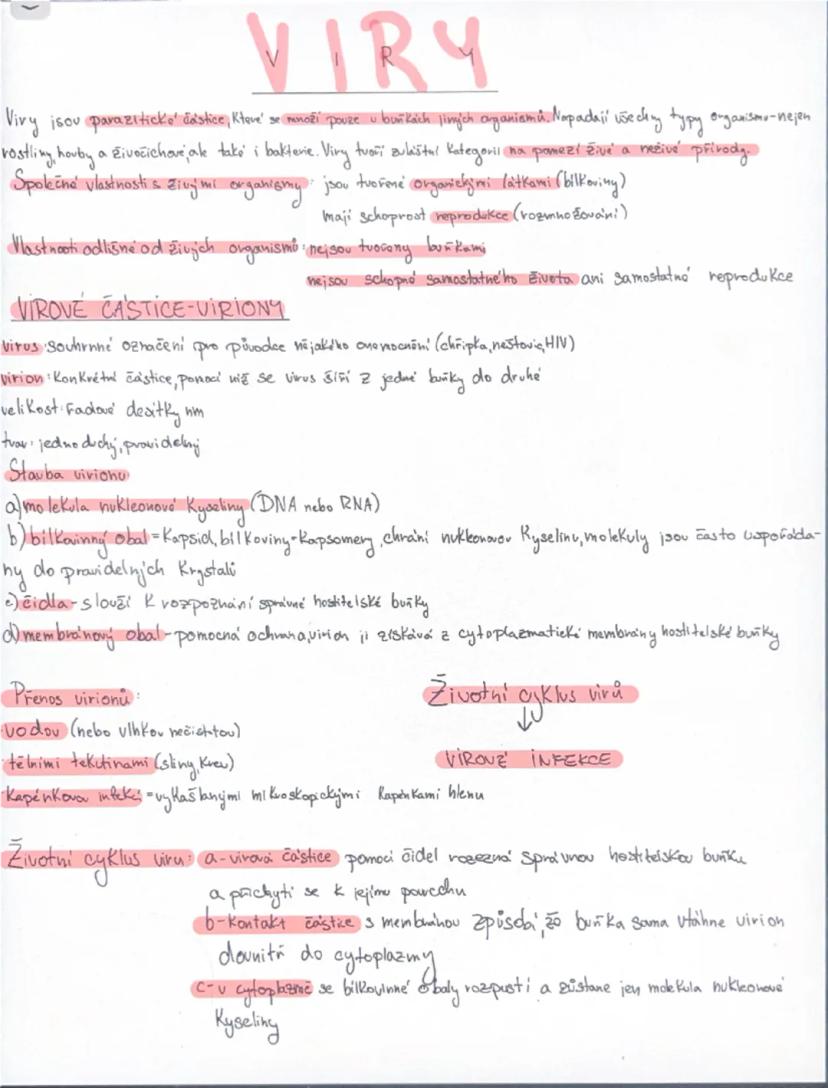 VIRY
Viry jsou parazitické částice, které se množí pouze v buňkách jiných organismů. Napadají všechny typy organismu-nejen
rostliny, houby a živočichové, ale také i bakterie. Viry tvoří zvláštní kategorii na pomezí živé a neživé přírody.
Společné vlastnosti s živými organismy: jsou tvořené organickými látkami (bílkoviny)
mají schopnost reprodukce (rozmnožování)
Vlastnosti odlišné od živých organismů: nejsou tvořeny buňkami
nejsou schopné samostatného života ani samostatné reprodukce
VIROVÉ ČÁSTICE-VIRIONY
virus: souhrnné označení pro původce nějakého onemocnění (chřipka, neštovice, HIV)
virion: konkrétní částice, pomocí níž se virus šíří z jedné buňky do druhé
velikost: řádově desítky nm
tvar: jednoduchý, pravidelný
Stavba virionu
a) molekula nukleonové kyseliny (DNA nebo RNA)
b) bílkovinný obal = kapsid, bílkoviny-kapsomery, chrání nukleonovou kyselinu, molekuly jsou často uspořáda-
ny do pravidelných krystalů
c) čidla - slouží k rozpoznání správné hostitelské buňky
d) membránový obal - pomocná ochrana, virion ji získává z cytoplazmatické membrány hostitelské buňky
Přenos virionů:
vodou (nebo vlhkou nečistotou)
tělními tekutinami (sliny, krev)
kapénkovou infekcí = vykašlanými mikroskopickými kapénkami hlenu
Životní cyklus virů
↓
VIROVÉ INFEKCE
Životní cyklus viru: a-virová částice pomocí čidel rozezná správnou hostitelskou buňku
a přichytí se k jejímu povrchu
b-kontakt částice s membránou způsobí, že buňka sama vtáhne virion
dovnitř do cytoplazmy
c-v cytoplazmě se bílkovinné obaly rozpustí a zůstane jen molekula nukleonové
kyseliny